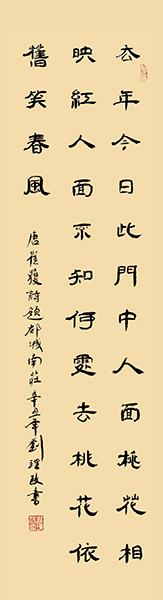 去年今日此門中人面桃花相
映紅人面不知何處去桃花依
舊笑春風
唐崔護詩題都城南莊辛丑年劉理政書